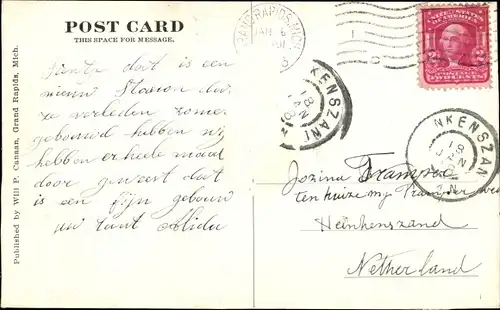 POST CARD
THIS SPACE FOR MESSAGE.
Published by Will P. Canaan, Grand Rapids, Mich.
Tintje dat is een
nieuw Stasion dat
ze verleden zomer
gebouwd hebben wij
hebben er heele maal
door gewest dat
is een fijn gebouw
uw tant Alida
GRAND RAPIDS, MICH.
JAN 6
UNITED STATES OF AMERICA
POSTAGE
TWO CENTS
2
NKENSZAN
18
JAN
NKENSZAN
18
JAN
Jozina Tramper
ten huize
Heinkenszand
Netherland